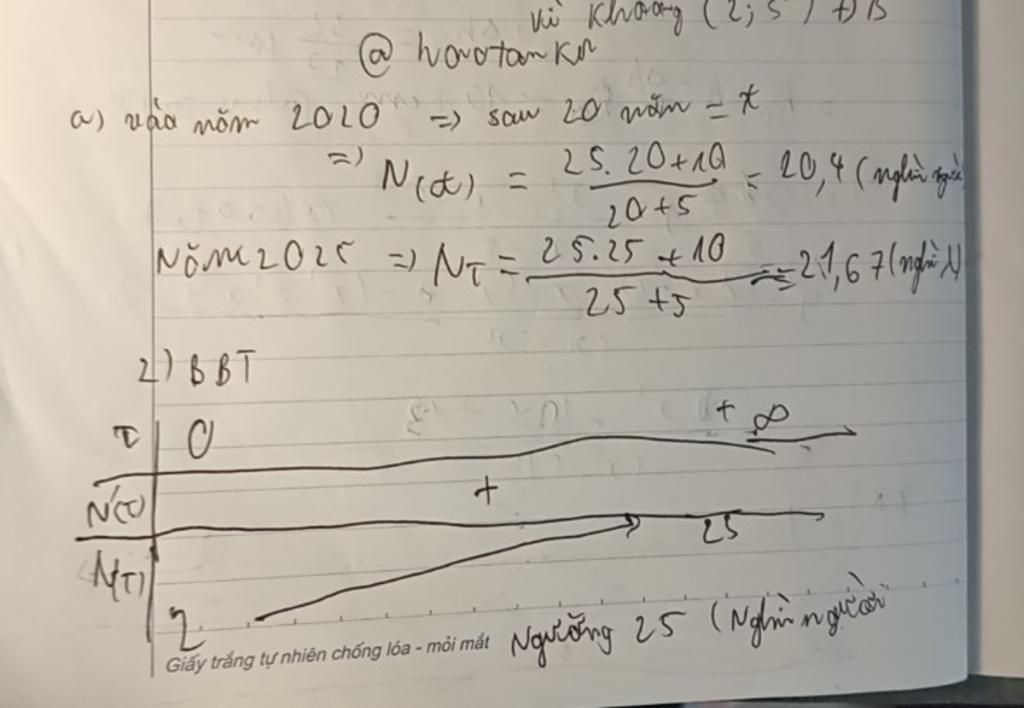 vì khoảng (2; 5) +) B
@ hovotankir
a) vào năm 2020 => sau 20 năm = t
=> N(t) = \frac{25.20+10}{20+5} = 20,4 (nghìn người
Năm 2025 => N_T = \frac{25.25+10}{25+5} = 21,67 (nghìn
2) BBT
t 0 + ∞
N'(t) +
N(T) 2 25
Ngưỡng 25 (Nghìn người
Giấy trắng tự nhiên chống lóa - mỏi mắt